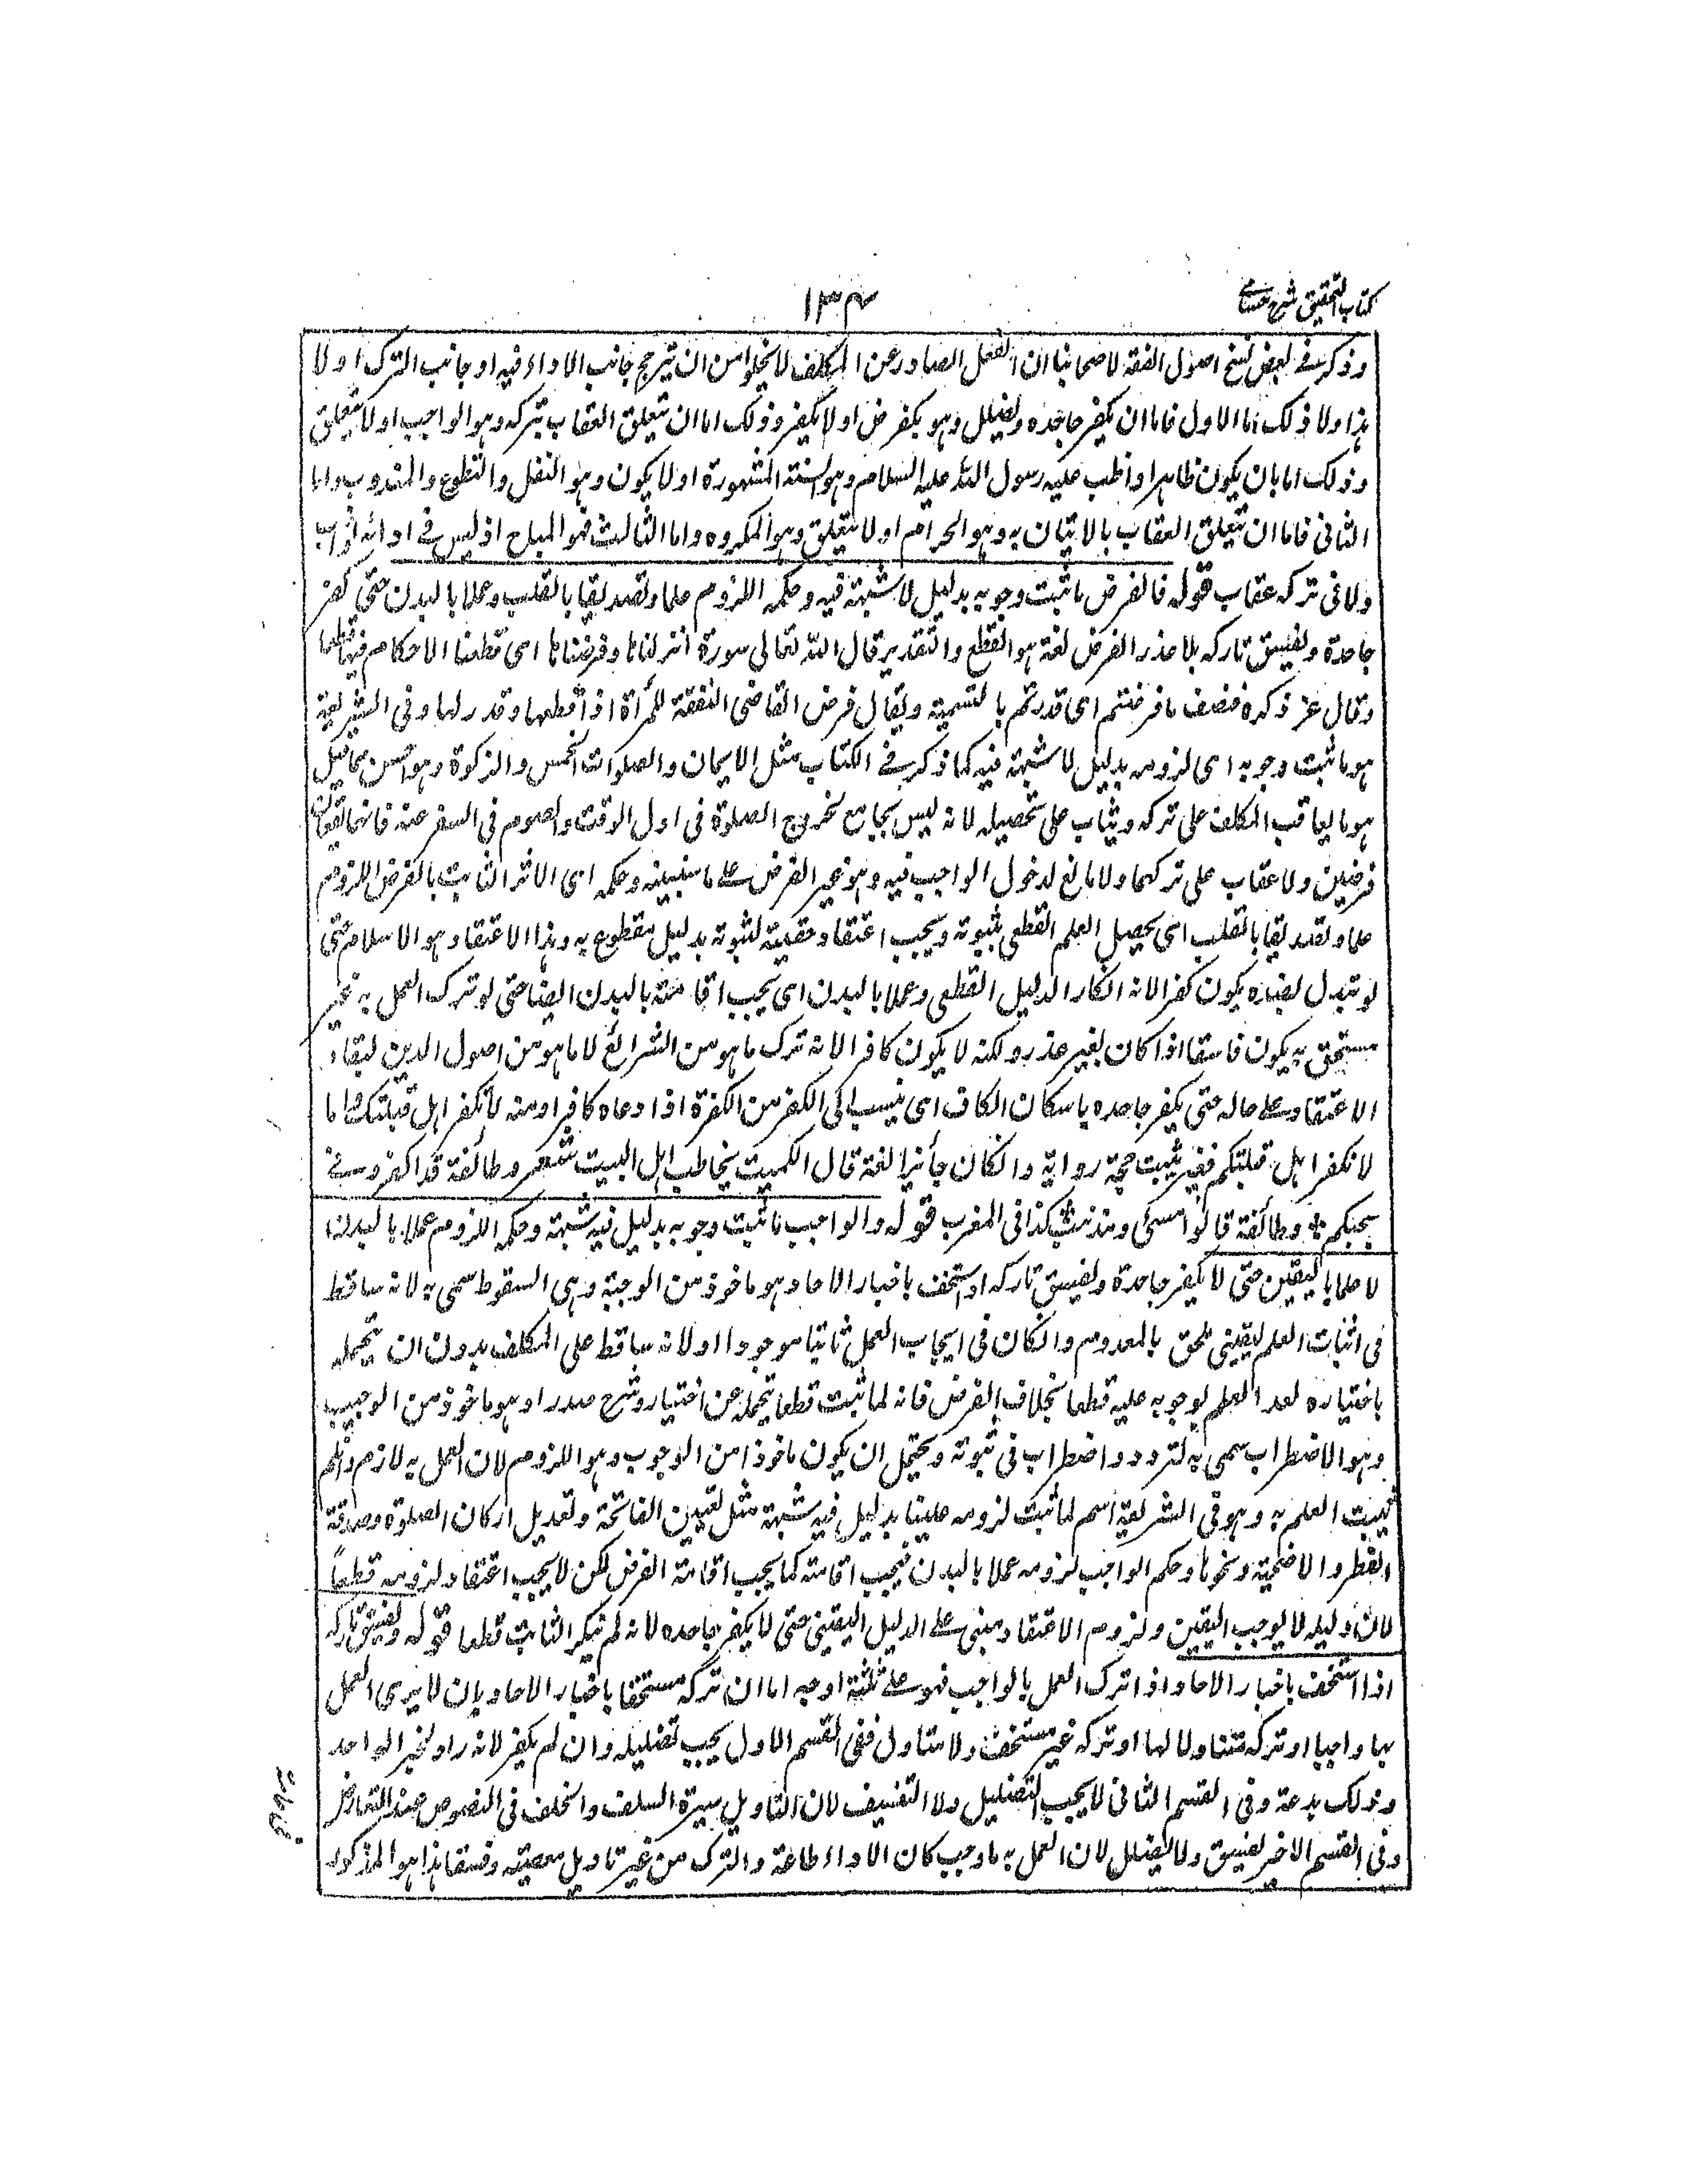 كتاب التحقيق شرح حسامي
١٣٤
وذكر في بعض نسخ اصول الفقه لاصحابنا ان الفعل الصادر عن المكلف لا يخلوا من ان يترجح جانب الاداء فيه او جانب الترك او لا
هذا ولا ذلك اما الاول فاما ان يكفر جاحده ويضلل وهو الفرض او لا يكفر وذلك اما ان يتعلق العقاب بتركه وهو الواجب او لا يتعلق
وذلك اما بان يكون ظاهرا واظب عليه رسول الله عليه السلام وهو السنة المشهورة او لا يكون وهو النفل والتطوع والمندوب واما
الثاني فاما ان يتعلق العقاب بالاتيان به وهو الحرام او لا يتعلق وهو المكروه واما الثالث فهو المباح اذ ليس في ادائه ثواب
ولا في تركه عقاب قوله فالفرض ما ثبت وجوبه بدليل لا شبهة فيه وحكمه اللزوم علما وتصديقا بالقلب وعملا بالبدن حتى يكفر
جاحدة ويفسق تاركه بلا عذر الفرض لغة هو القطع والتقدير قال الله تعالى سورة انزلناها وفرضناها اى قطعنا الاحكام فيها قطعا
وقال عز ذكره فنصف ما فرضتم اى قدرتم بالتسمية ويقال فرض القاضى النفقة للمرأة اذا قطعها وقدر لها وفى الشريعة
هو ما ثبت وجوبه اى لزومه بدليل لا شبهة فيه كما ذكر في الكتاب مثل الايمان والصلوات الخمس والزكوة وهو احسن مما قيل
هو ما يعاقب المكلف على تركه ويثاب على تحصيله لانه ليس بجامع لخروج الصلوة فى اول الوقت والصوم فى السفر عنه فانهما يقعان
فرضين ولا عقاب على تركهما ولا مانع لدخول الواجب فيه وهو غير الفرض على ما سنبينه وحكمه اى الاثر الثابت بالفرض اللزوم
علما وتصديقا بالقلب اى يحصل العلم القطعى بثبوته ويجب اعتقاد حقيته لثبوته بدليل مقطوع به وهذا الاعتقاد هو الاسلام حتى
لو تبدل بضده يكون كفرا لانه انكار الدليل القطعى وعملا بالبدن اى يجب اقامته بالبدن ايضا حتى لو ترك العمل به غير
مستخف به يكون فاسقا اذا كان بغير عذر ولكنه لا يكون كافرا لانه ترك ما هو من الشرائع لا ما هو من اصول الدين لبقاء
الاعتقاد على حاله حتى يكفر جاحده باسكان الكاف اى ينسب الى الكفر من اكفره اذا دعاه كافرا ومنه لا تكفر اهل قبلتك واما
لا نكفر اهل قبلتكم فغير ثبت حجة رواية وانكان جائزا لغة قال الكميت يخاطب اهل البيت شعر وطائفة قد اكفرونى
بحبكم * وطائفة قالوا مسئ ومذنب كذا فى المغرب قوله والواجب ما ثبت وجوبه بدليل فيه شبهة وحكمه اللزوم عملا بالبدن
لا علما باليقين حتى لا يكفر جاحدة ويفسق تاركه اذا استخف باخبار الاحاد وهو ماخوذ من الوجبة وهى السقوط سمى به لانه ساقط
فى اثبات العلم اليقينى ملحق بالمعدوم وانكان فى ايجاب العمل ثابتا موجودا او لانه ساقط على المكلف بدون ان يتحمله
باختياره لعدم العلم بوجوبه عليه قطعا بخلاف الفرض فانه لما ثبت قطعا يتحمله عن اختيار وشرح صدر او هو ماخوذ من الوجيب
وهو الاضطراب سمى به لتردد واضطراب فى ثبوته ويحتمل ان يكون ماخوذا من الوجوب وهو اللزوم لان العمل به لازم وان لم
يثبت العلم به وهو فى الشريعة اسم لما ثبت لزومه علينا بدليل فيه شبهة مثل تعيين الفاتحة وتعديل اركان الصلوة وصدقة
الفطر والاضحية ونحوها وحكم الواجب لزومه عملا بالبدن فيجب اقامته كما يجب اقامة الفرض لكن لا يجب اعتقاد لزومه قطعا
لان دليله لا يوجب اليقين ولزوم الاعتقاد مبنى على الدليل اليقينى حتى لا يكفر جاحده لانه لم ينكر الثابت قطعا قوله ويفسق تاركه
اذا استخف باخبار الاحاد اذا ترك العمل بالواجب فهو على ثلثة اوجه اما ان تركه مستخفا باخبار الاحاد بان لا يرى العمل
بها واجبا او تركه متاولا لها او تركه غير مستخف ولا متاول ففى القسم الاول يجب تضليله وان لم يكفر لانه راد لخبر الواحد
وذلك بدعة وفى القسم الثانى لا يجب التضليل ولا التفسيق لان التاويل سيرة السلف والخلف فى النصوص عند التعارض
وفى القسم الاخير يفسق ولا يضلل لان العمل به ما وجب كان الاداء طاعة والترك من غير تاويل معصية وفسقا هذا هو المذكور